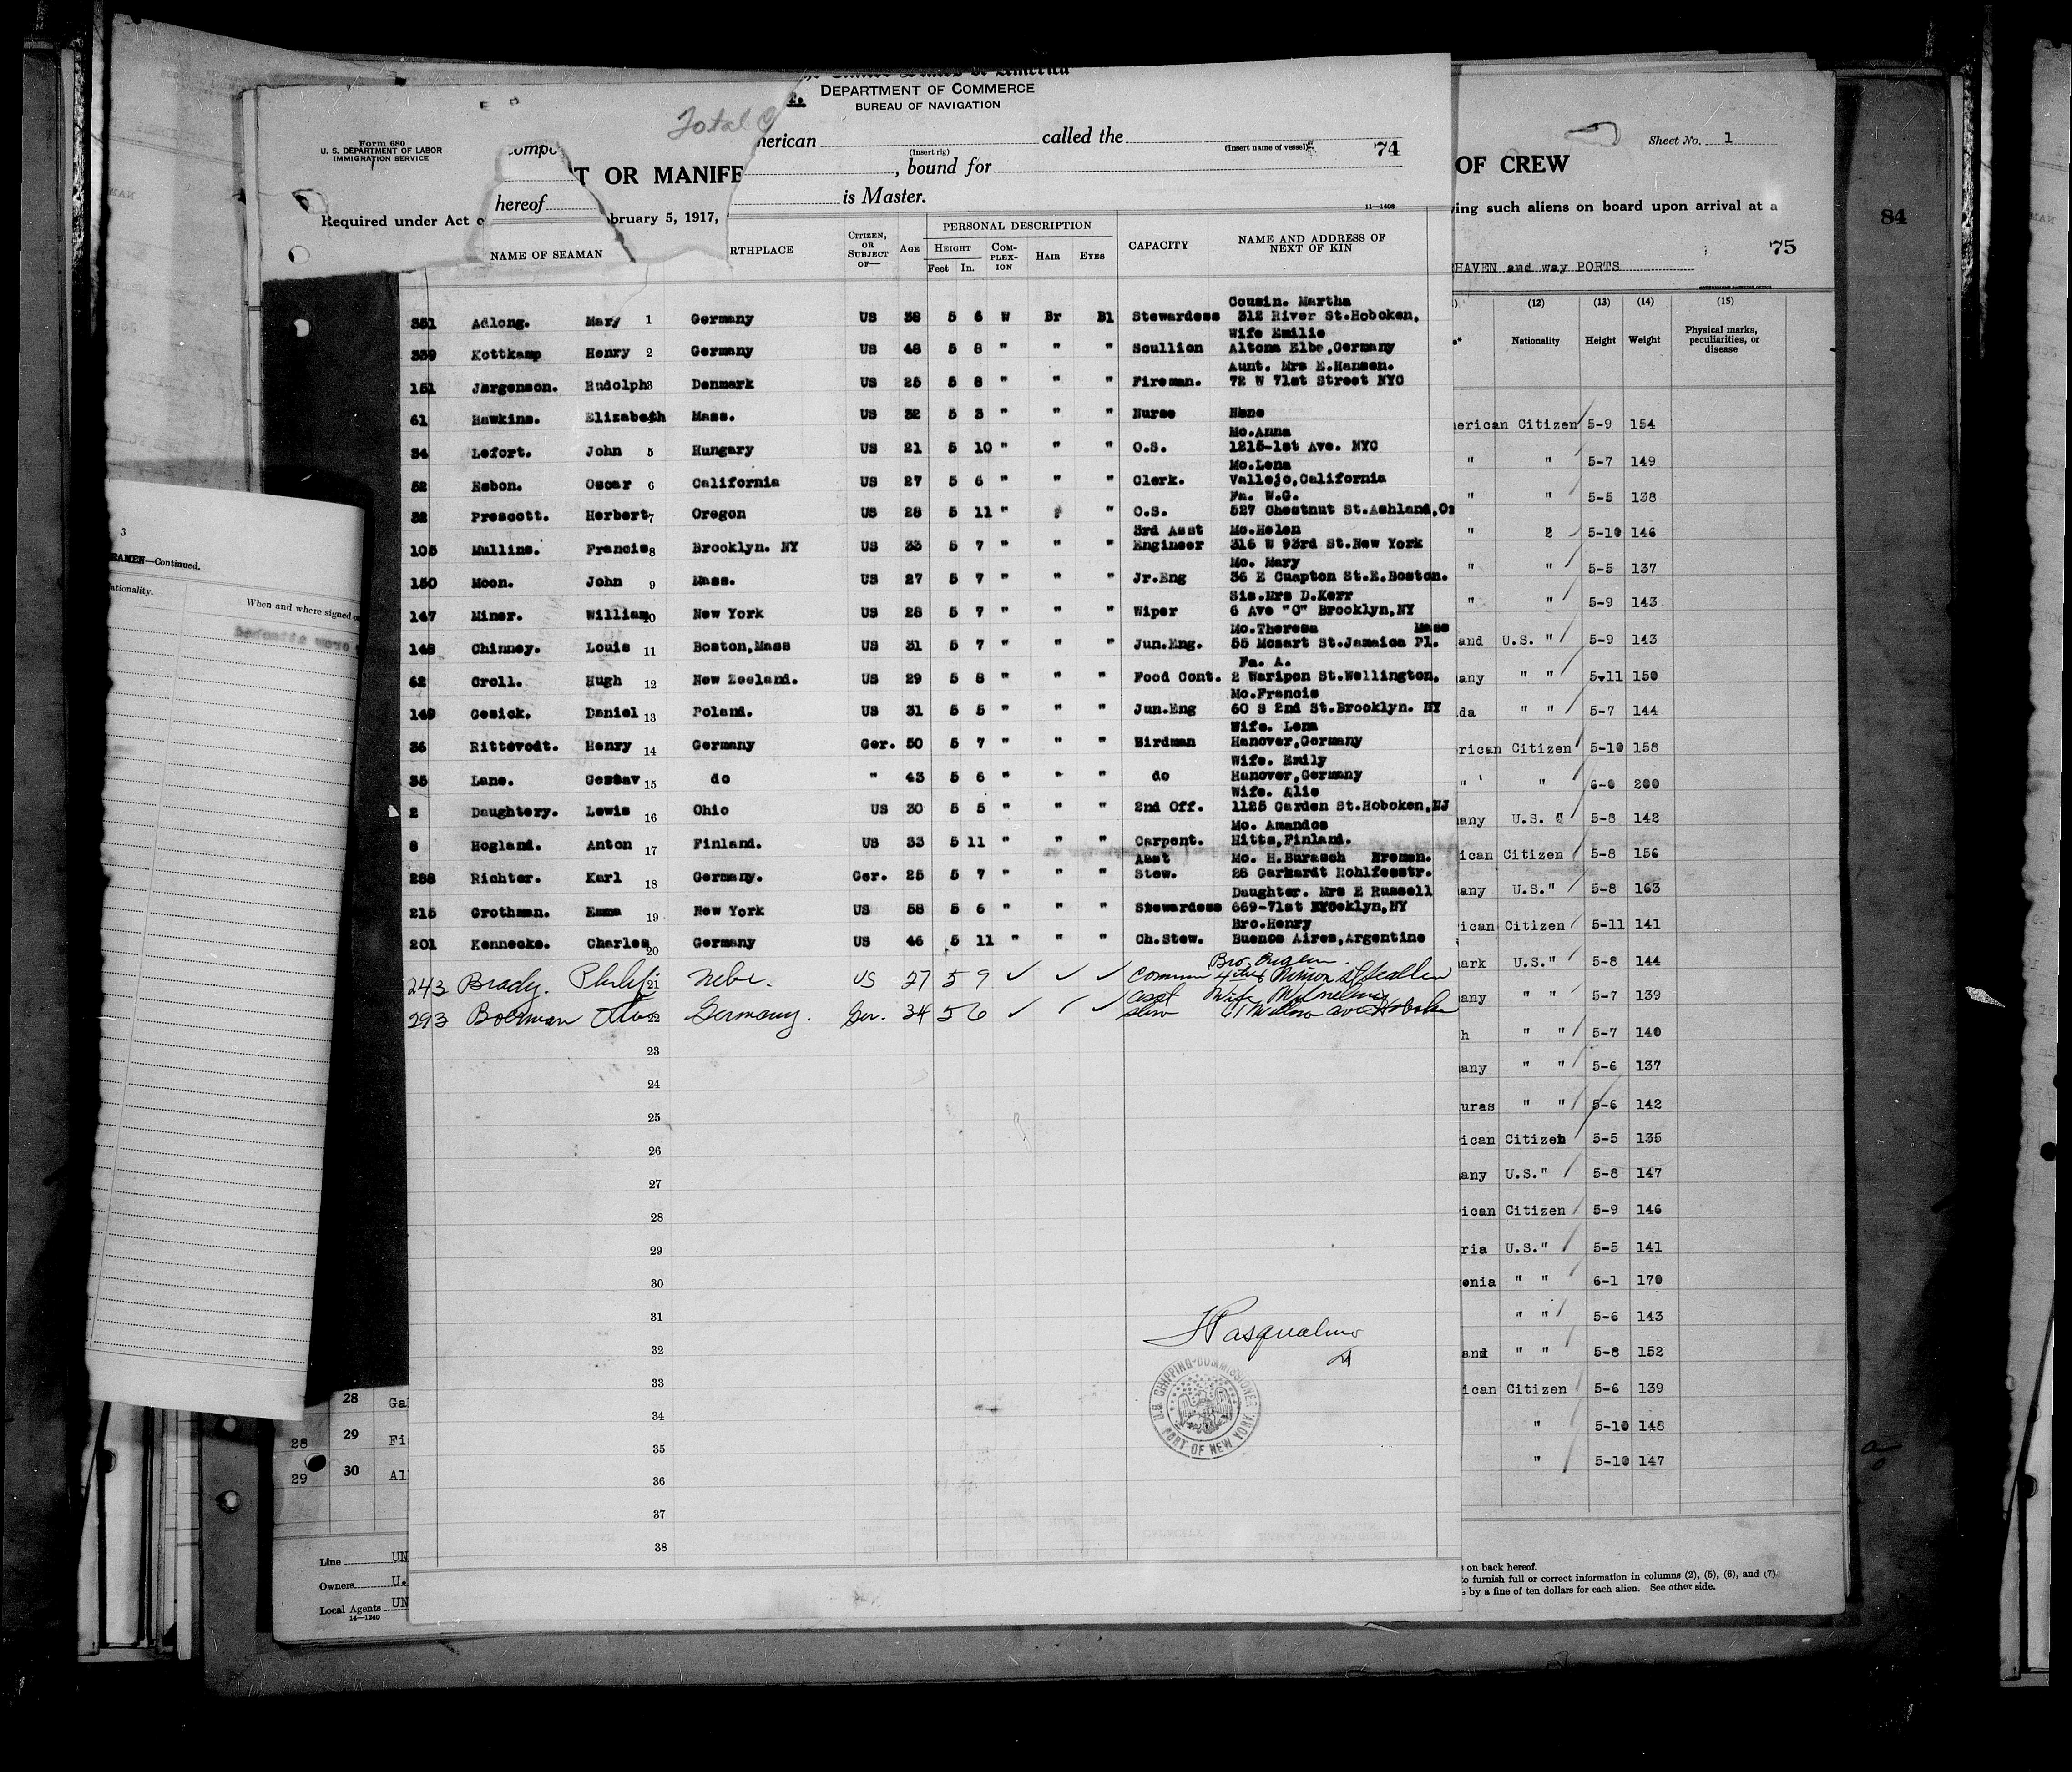 the United States of America
DEPARTMENT OF COMMERCE
BUREAU OF NAVIGATION
Total
Form 680
U. S. DEPARTMENT OF LABOR
IMMIGRATION SERVICE
merican called the
(Insert rig) (Insert name of vessel)
74
T OR MANIFE
, bound for
hereof is Master.
Required under Act o
bruary 5, 1917,
11—1406
Sheet No. 1
OF CREW
ving such aliens on board upon arrival at a
75
HAVEN and way PORTS
84
NAME OF SEAMAN RTHPLACE CITIZEN, OR SUBJECT OF— AGE PERSONAL DESCRIPTION CAPACITY NAME AND ADDRESS OF NEXT OF KIN
HEIGHT COM-PLEX-ION HAIR EYES
Feet In.
Cousin. Martha
351 Adlong. Mary 1 Germany US 38 5 6 W Br Bl Stewardess 312 River St.Hoboken,
Wife Emilie
339 Kottkamp Henry 2 Germany US 48 5 8 " " " Scullion Altona Elbe,Germany
Aunt. Mrs E.Hansen.
151 Jørgenson. Rudolph 3 Denmark US 25 5 8 " " " Fireman. 72 W 71st Street NYC
61 Hawkins. Elizabeth Mass. US 32 5 3 " " " Nurse None
Mo.Anna
34 Lefort. John 5 Hungary US 21 5 10 " " " O.S. 1215-1st Ave. NYC
Mo.Lena
52 Esbon. Oscar 6 California US 27 5 6 " " " Clerk. Vallejo,California
Fa. W.G.
32 Prescott. Herbert 7 Oregon US 28 5 11 " " O.S. 527 Chestnut St.Ashland,Or
3rd Asst Mo.Helen
105 Mullins. Francis 8 Brooklyn. NY US 33 5 7 " " " Engineer 316 W 93rd St.New York
Mo. Mary
150 Moon. John 9 Mass. US 27 5 7 " " " Jr.Eng 36 E Cuapton St.E.Boston.
Sis.Mrs D.Kerr
147 Miner. William 10 New York US 28 5 7 " " " Wiper 6 Ave "C" Brooklyn,NY
Mo.Theresa Mass
148 Chinney. Louis 11 Boston,Mass US 31 5 7 " " " Jun.Eng. 55 Mozart St.Jamaica Pl.
Fa. A.
62 Croll. Hugh 12 New Zeeland. US 29 5 8 " " " Food Cont. 2 Waripon St.Wellington.
Mo.Francis
149 Gesick. Daniel 13 Poland. US 31 5 5 " " " Jun.Eng 60 S 2nd St.Brooklyn. NY
Wife. Lena
36 Rittevodt. Henry 14 Germany Ger. 50 5 7 " " " Birdman Hanover,Germany
Wife. Emily
35 Lane. Gustav 15 do " 43 5 6 " " " do Hanover,Germany
Wife. Alie
2 Daughtery. Lewis 16 Ohio US 30 5 5 " " " 2nd Off. 1125 Garden St.Hoboken,NJ
Mo. Amandos
8 Hogland. Anton 17 Finland. US 33 5 11 " " " Carpent. Hitts,Finland.
Asst Mo. H.Burasch Bremen.
288 Richter. Karl 18 Germany. Ger. 25 5 7 " " " Stew. 28 Garhardt Rohlfesstr.
Daughter. Mrs E Russell
215 Grothman. Emma 19 New York US 58 5 6 " " " Stewardess 669-71st Brooklyn,NY
Bro.Henry
201 Kennecke. Charles 20 Germany US 46 5 11 " " " Ch.Stew. Buenos Aires,Argentine
243 Brady. Philip 21 Nebr. US 27 5 9 ✓ ✓ ✓
asst Wife
293 Boerman Otto 22 Germany. Ger. 34 5 6 ✓ ✓ ✓ stew 61 Willow ave Hoboken
23
24
25
26
27
28
29
30
31
32
33
34
35
36
37
38
Pasqualino
U.S. SHIPPING-COMMISSIONER
PORT OF NEW YORK
(12) (13) (14) (15)
Nationality Height Weight Physical marks, peculiarities, or disease
merican Citizen 5-9 154
" " 5-7 149
" " 5-5 138
" 2 5-10 146
" " 5-5 137
" " 5-9 143
and U.S. " 5-9 143
any " " 5-11 150
da " " 5-7 144
rican Citizen 5-10 158
" " 6-0 200
any U.S. " 5-8 142
ican Citizen 5-8 156
any U.S." 5-8 163
ican Citizen 5-11 141
ark U.S." 5-8 144
any " " 5-7 139
h " " 5-7 140
any " " 5-6 137
uras " " 5-6 142
ican Citizen 5-5 135
any U.S." 5-8 147
ican Citizen 5-9 146
ria U.S." 5-5 141
enia " " 6-1 170
" " 5-6 143
and " " 5-8 152
ican Citizen 5-6 139
" 5-10 148
" 5-10 147
on back hereof.
to furnish full or correct information in columns (2), (5), (6), and (7)
by a fine of ten dollars for each alien. See other side.
3
EAMEN—Continued.
ationality. When and where signed o
28 Ga
28 29 Fi
29 30 Al
Line UN
Owners U.
Local Agents UN
14—1240